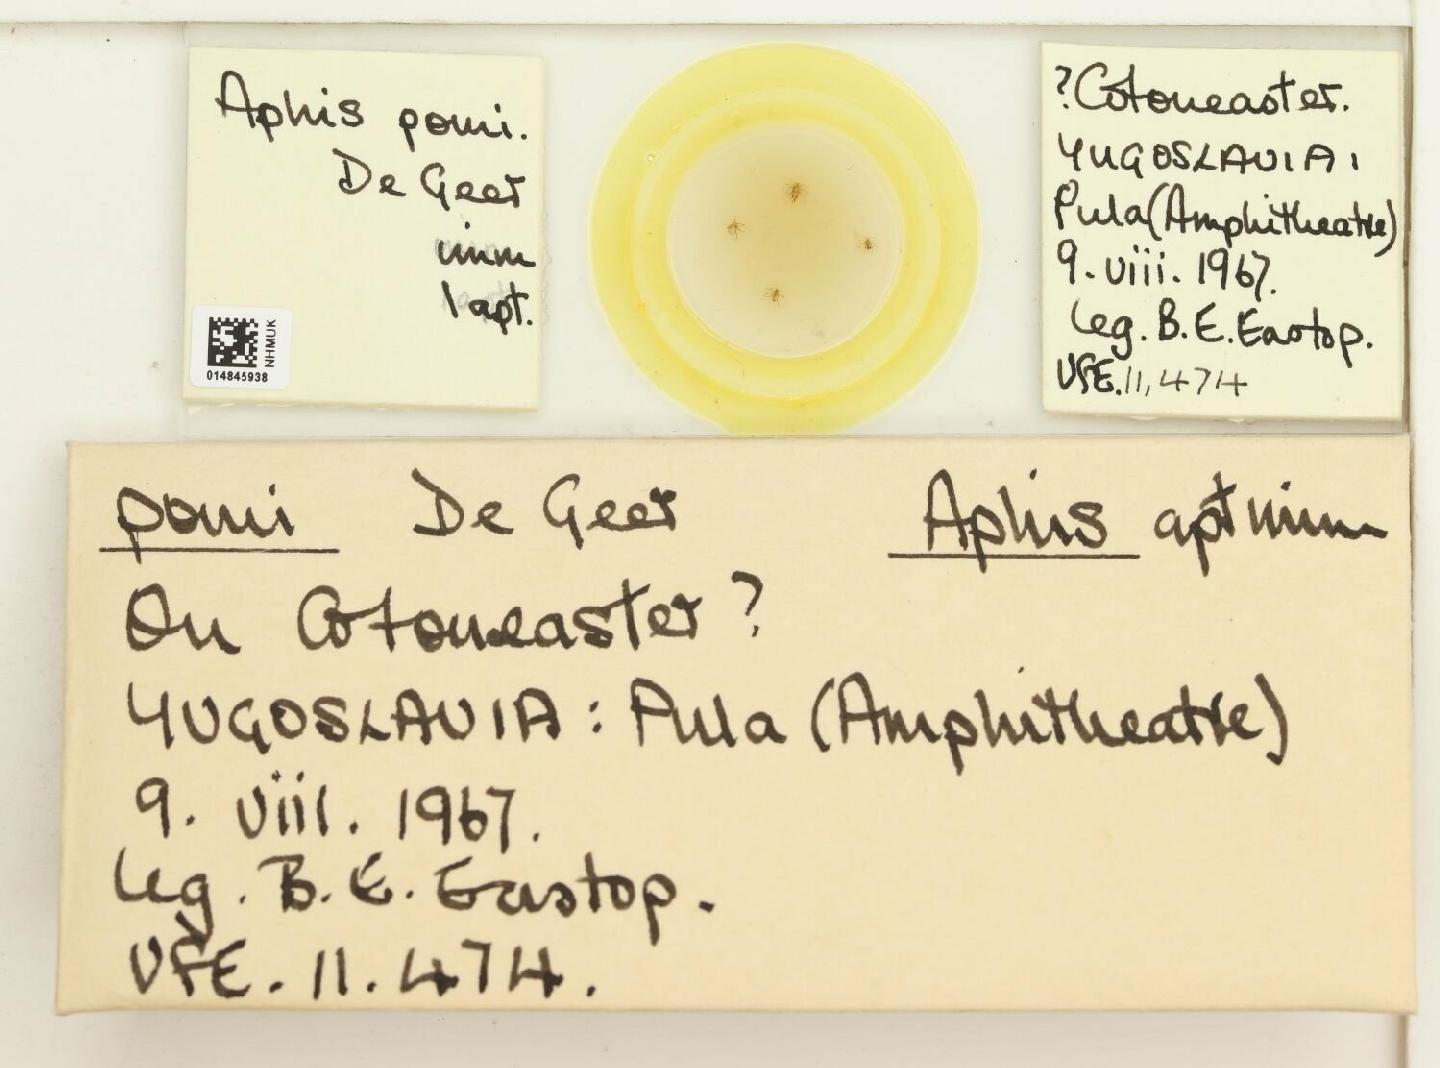 Aphis pomi.
De Geer
imm
1 apt.
NHMUK
014845938
?Cotoneaster.
YUGOSLAVIA:
Pula (Amphitheatre)
9. viii. 1967.
Leg. B. E. Eastop.
VFE. 11,474
pomi De Geer Aphis apt imm
On Cotoneaster?
YUGOSLAVIA: Pula (Amphitheatre)
9. viii. 1967.
Leg. B. E. Eastop.
VFE. 11. 474.